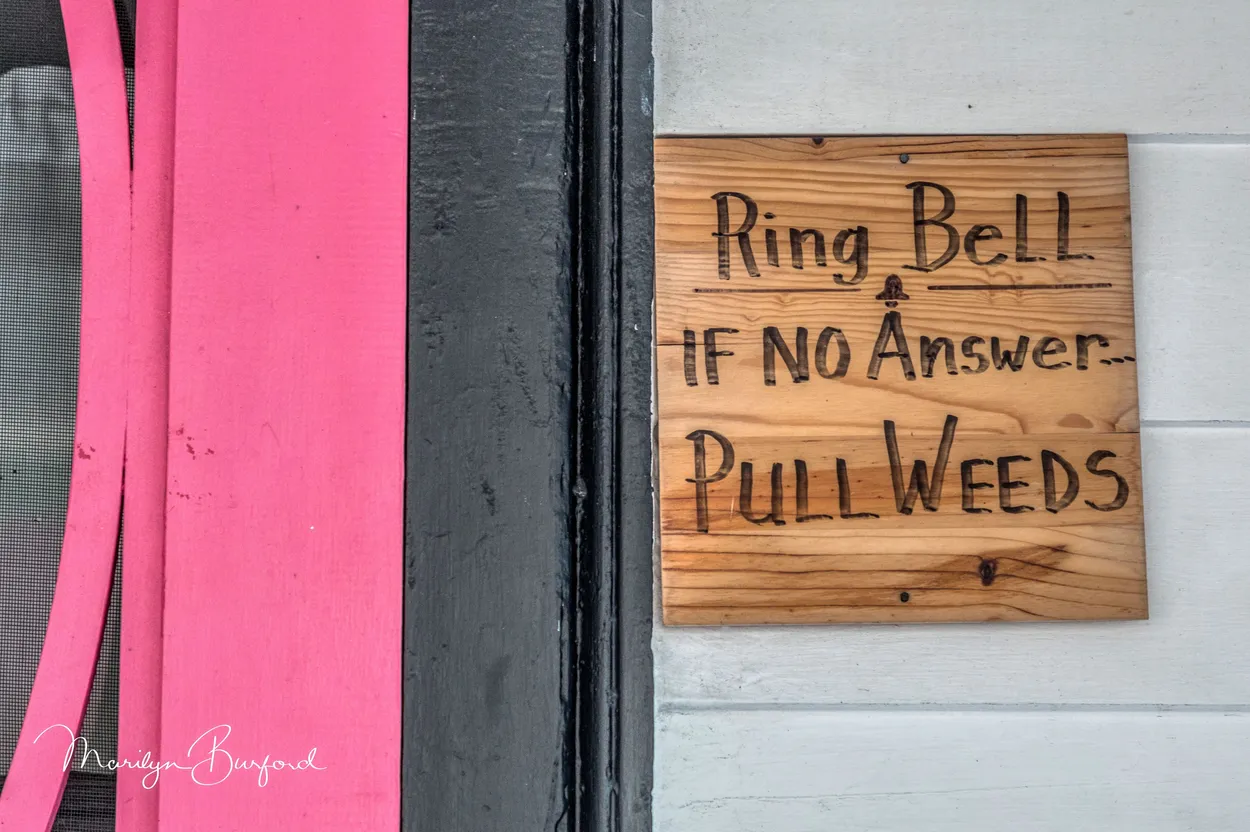 Ring Bell
IF NO Answer...
PULL WEEDS
Marilyn Burford